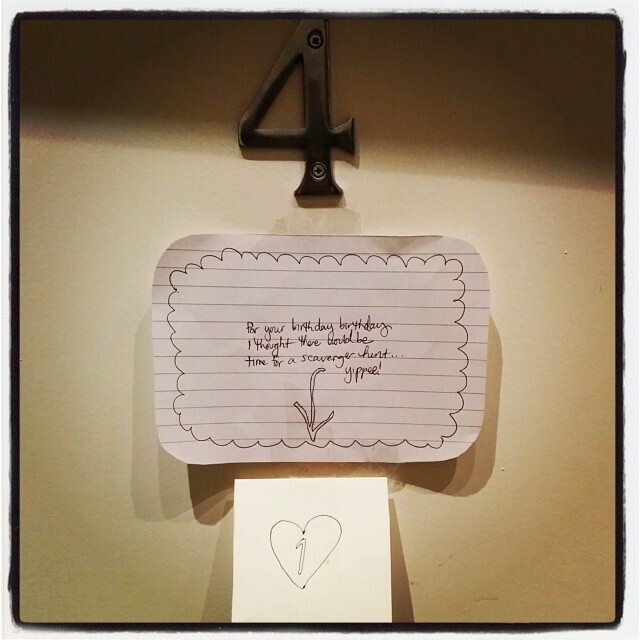 4
For your birthday birthday
I thought there would be
time for a scavenger hunt...
yippee!
1